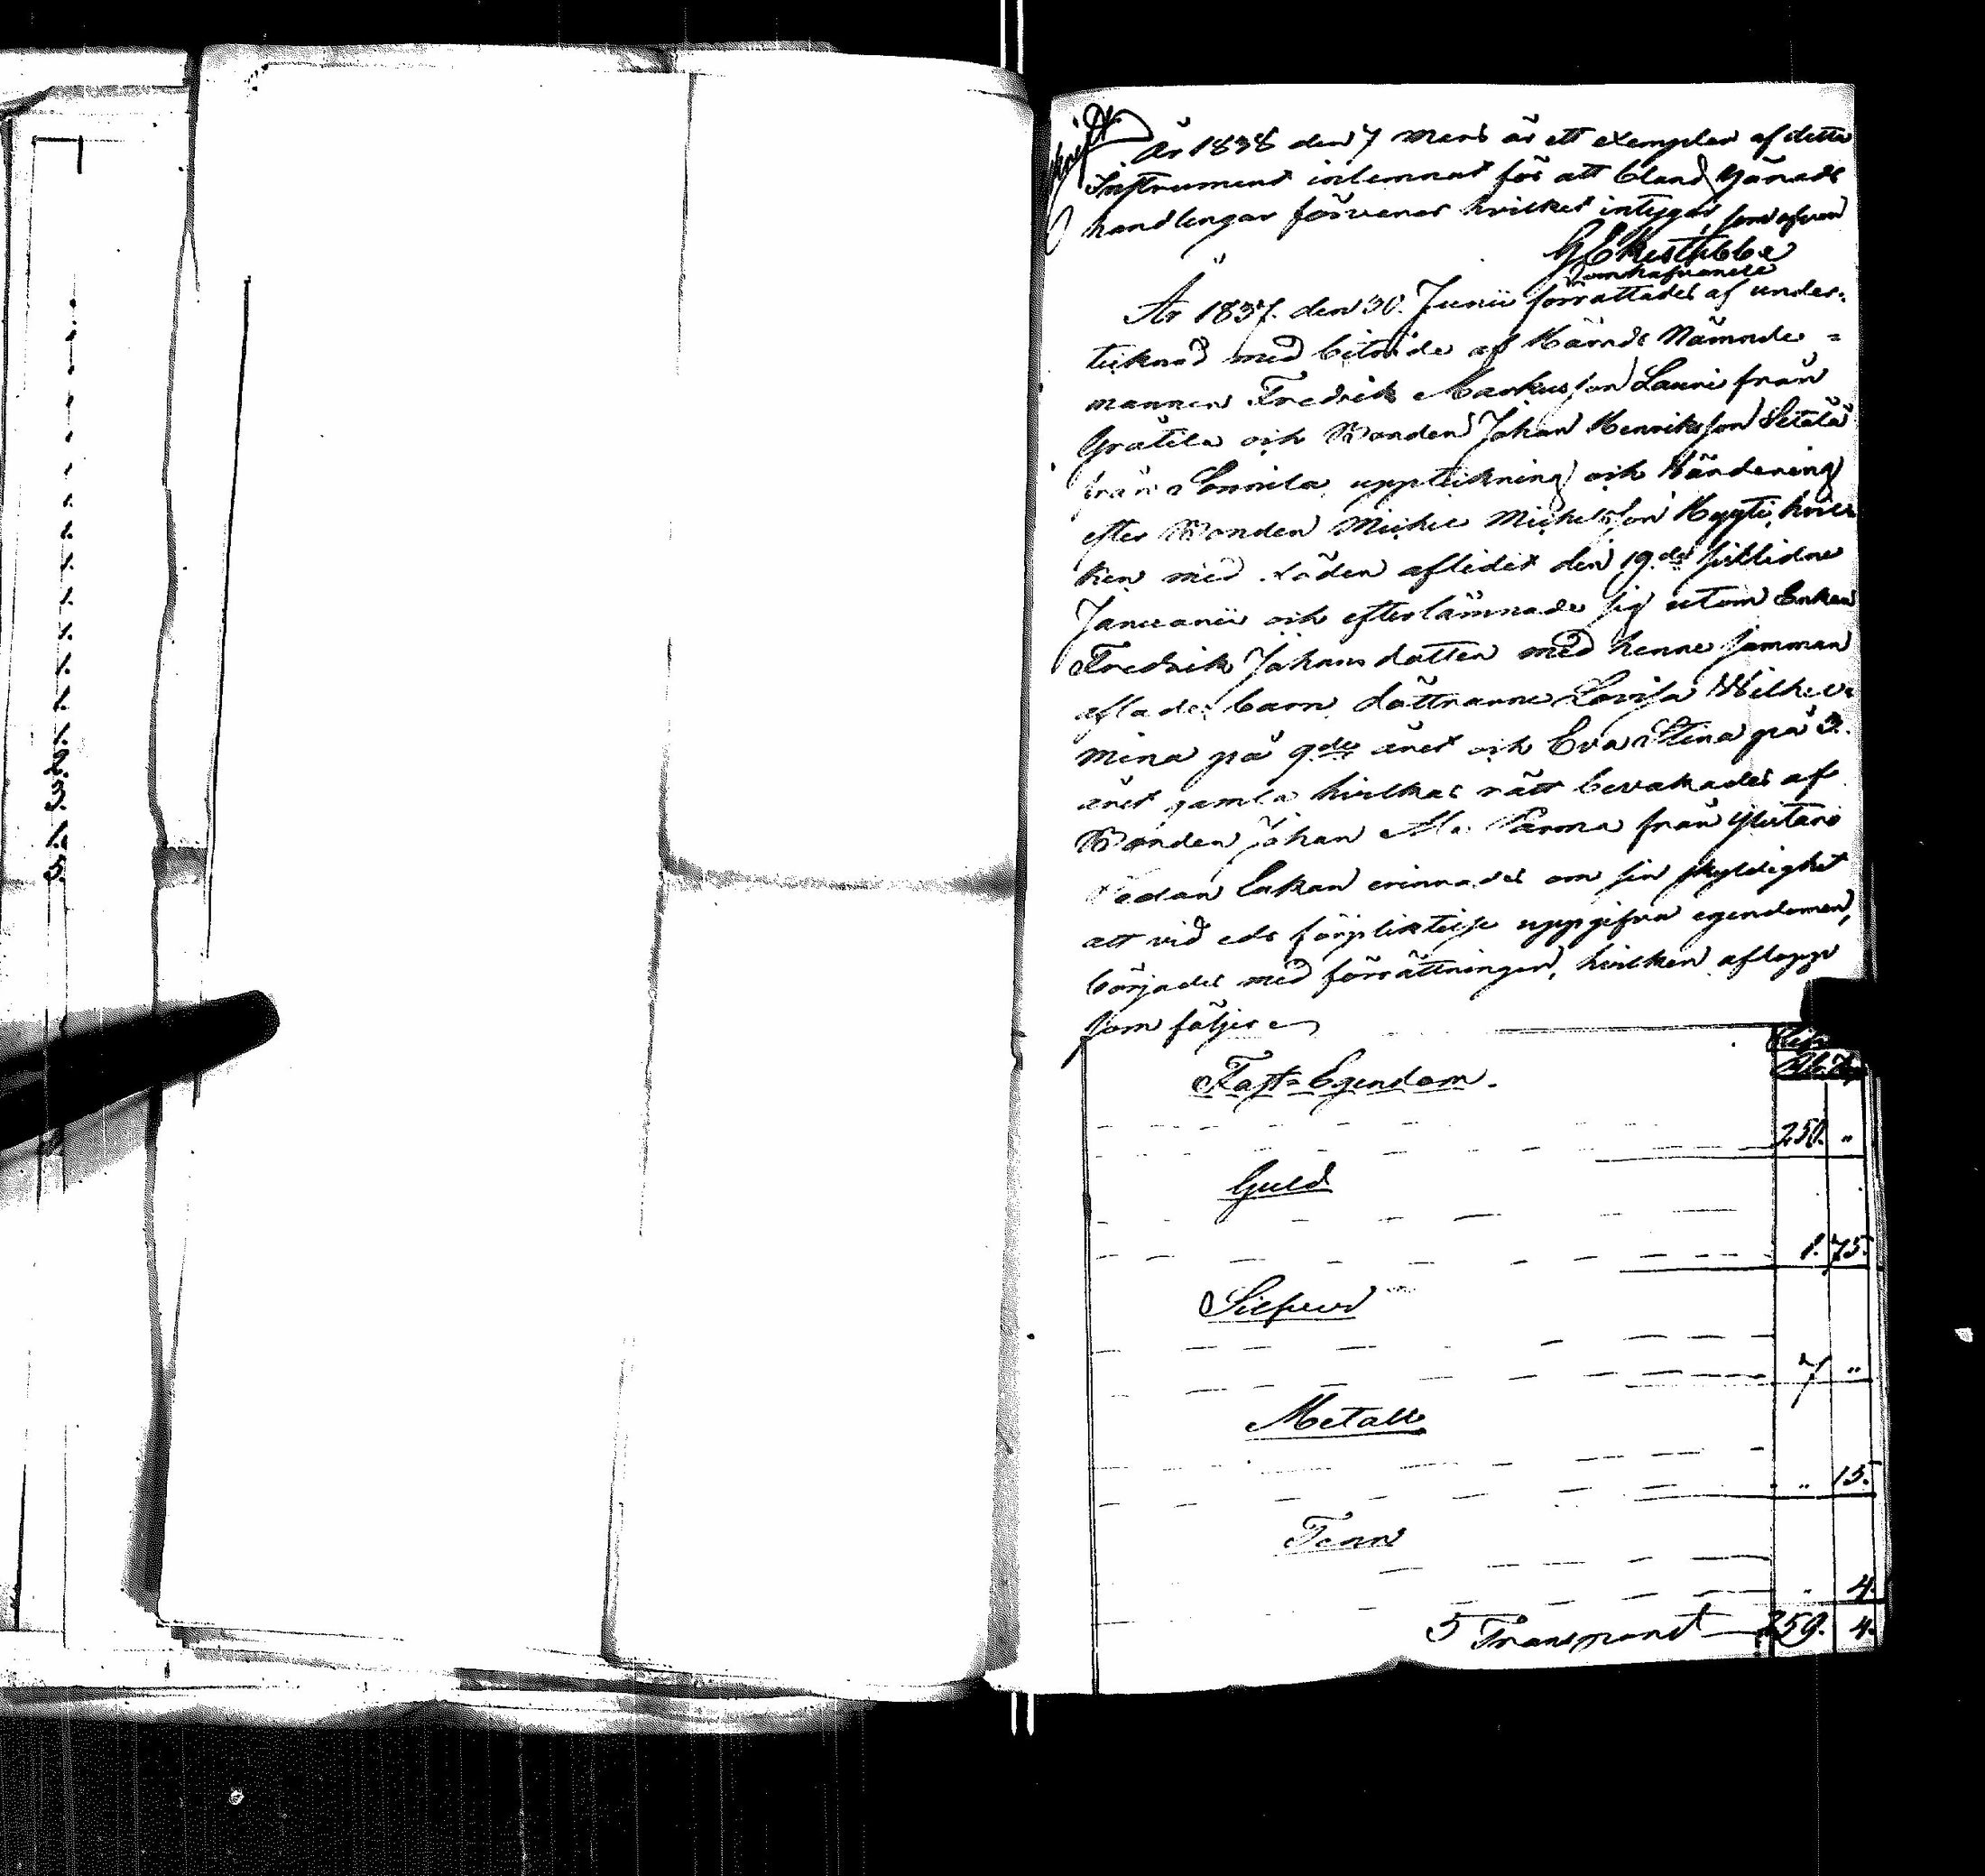 År 1838 den 7 Mars är ett exemplar af detta
Instrument inlemnat för att bland Härads
handlingar förvaras hvilket intygar, som ofvan
År 1837. den 30. Junii förrättades af under-
tecknad med biträde af Härads Nämnde =
mannen Fredrik Markusson Lauri från
Grätila och Bonden Johan Henriksson Seetälä
från Sonnila, uppteckning och Värdering
efter Bonden Michel Michelsson Kyyti, hvil-
ken med döden aflidit den 19de sistlidne
Januarii och efterlämnade sig utom Enkan
Fredrik Johansdotter med henne samman
aflade barn döttrarne Lovisa Wilhel-
mina på 9de året och Eva Stina på 3.
året gamla hvilkas rätt bevakades af
Bonden Johan M. Parma från Ylistaro
Sedan Enkan erinrades om sin skyldighet
att vid eds förpliktelse uppgifva egendomen,
börjades med förrättningen, hvilken aflopp
som följer
Fast=Egendom.
250. "
Guld
1. 75.
Silfver
7 "
Metall
" 15.
Tenn
" 4.
Transport 259. 4.